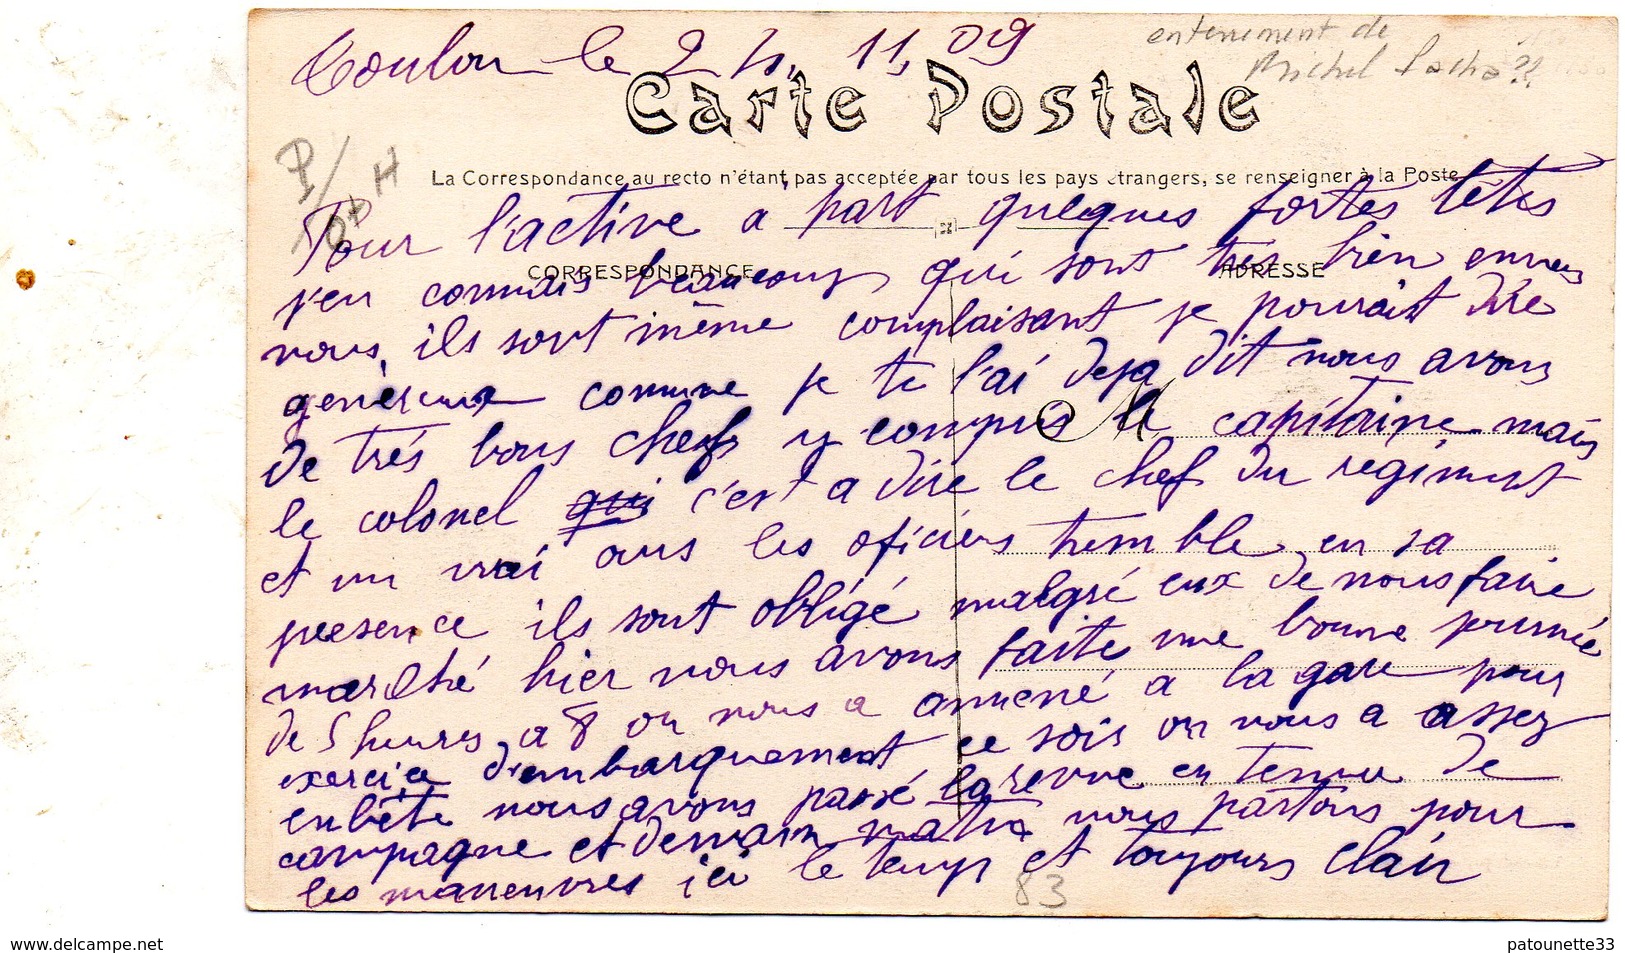 Toulon le 24. 11. 09
enterrement de
Michel Pacha??
Carte Postale
P/
H
La Correspondance au recto n'étant pas acceptée par tous les pays étrangers, se renseigner à la Poste
CORRESPONDANCE
ADRESSE
Pour l'active a part quelques fortes têtes
j'en connais beaucoup qui sont tres bien envers
nous, ils sont même complaisant je pourait dire
genéreux comme je te l'ai deja dit nous avons
de trés bons chefs y compris le capitaine mais
le colonel qui c'est a dire le chef du regiment
et un vrai ours les oficiers tremble en sa
presence ils sont obligé malgré eux de nous faire
marché hier nous avons faite une bonne journée
de 5 heures a 8 on nous a amené a la gare pour
exercice d'embarquement ce soir on nous a assez
enbêté nous avons passé la revue en tenue de
campagne et demain matin nous partons pour
les maneuvres ici le temp et toujours clair
83
www.delcampe.net
patounette33